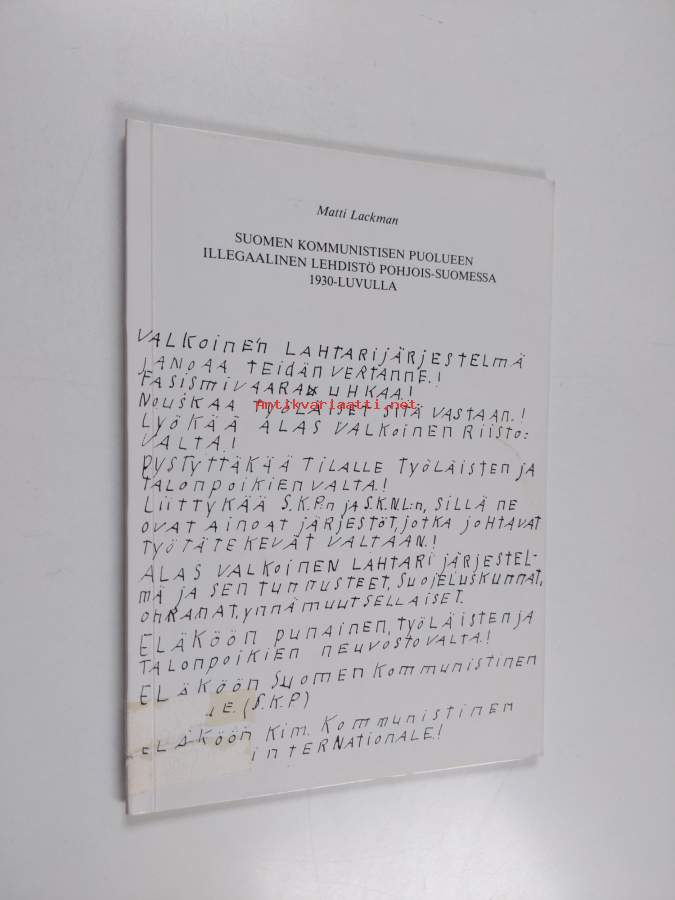 Matti Lackman
SUOMEN KOMMUNISTISEN PUOLUEEN
ILLEGAALINEN LEHDISTÖ POHJOIS-SUOMESSA
1930-LUVULLA
VALKOINEN LAHTARIJÄRJESTELMÄ
JANOAA TEIDÄN VERTANNE.!
FASISMIVAARA UHKAA.!
NOUSKAA TYÖLÄISET SITÄ VASTAAN.!
antikvariaatti.net
LYÖKÄÄ ALAS VALKOINEN RIISTO:
VALTA.!
PYSTYTTÄKÄÄ TILALLE TYÖLÄISTEN JA
TALONPOIKIEN VALTA.!
LIITTYKÄÄ S.K.P:n JA S.K.N.L:n, SILLÄ NE
OVAT AINOAT JÄRJESTÖT, JOTKA JOHTAVAT
TYÖTÄTEKEVÄT VALTAAN.!
ALAS VALKOINEN LAHTARIJÄRJESTEL-
MÄ JA SEN TUNNUSTEET, SUOJELUSKUNNAT,
OHRANAT, YNNÄ MUUT SELLAISET.
ELÄKÖÖN PUNAINEN, TYÖLÄISTEN JA
TALONPOIKIEN NEUVOSTOVALTA.!
ELÄKÖÖN SUOMEN KOMMUNISTINEN
UE. (S.K.P)
ELÄKÖÖN KIM. KOMMUNISTINEN
INTERNATIONALE.!